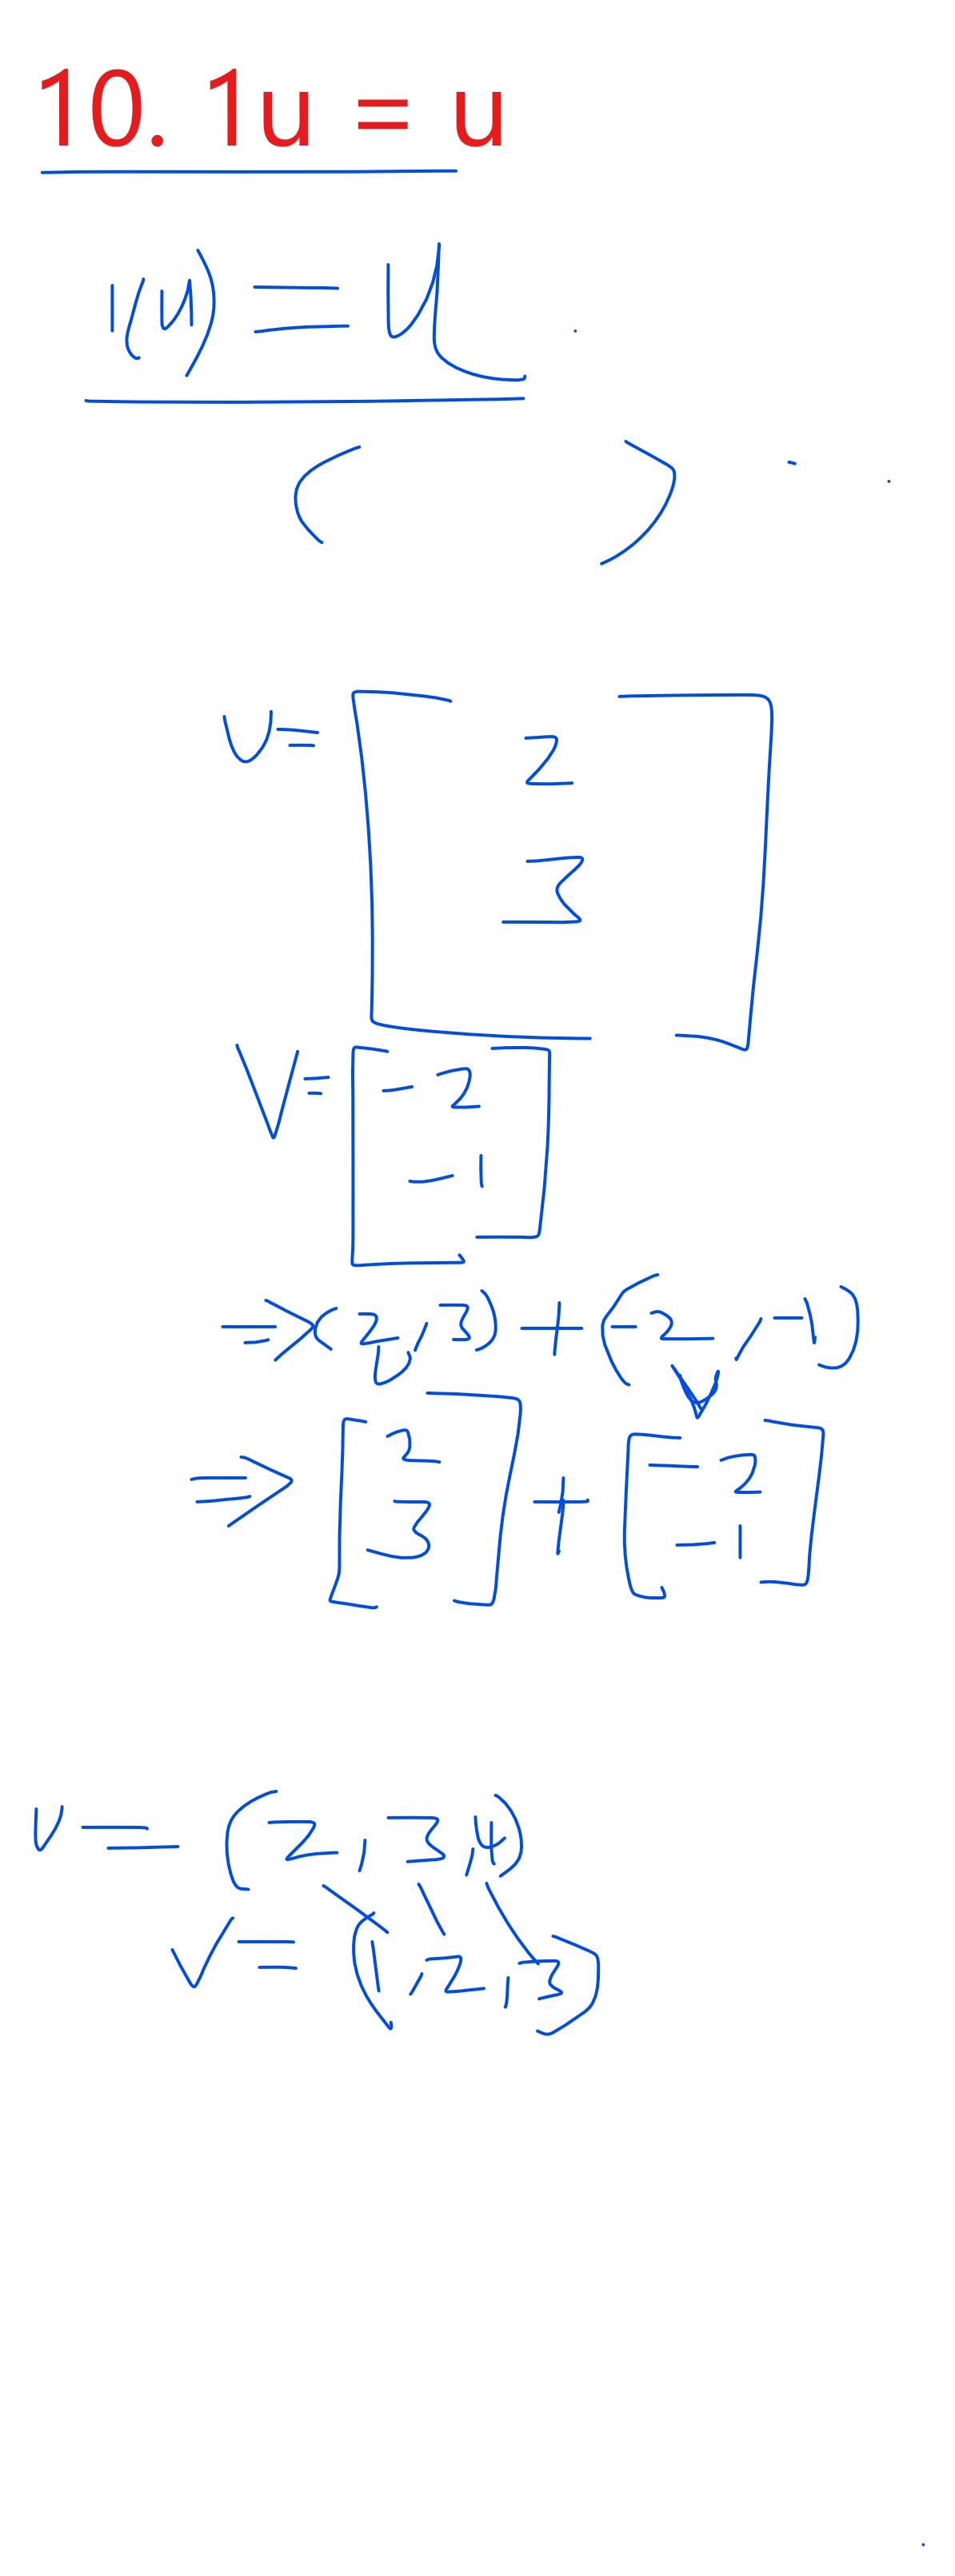 10. 1u = u
1(u) = u
( )
U = [ 2
3 ]
V = [ -2
-1 ]
⇒ (2, 3) + (-2, -1)
U V
⇒ [ 2 ] + [ -2 ]
[ 3 ] [ -1 ]
U = (2, 3, 4)
V = (1, 2, 3)